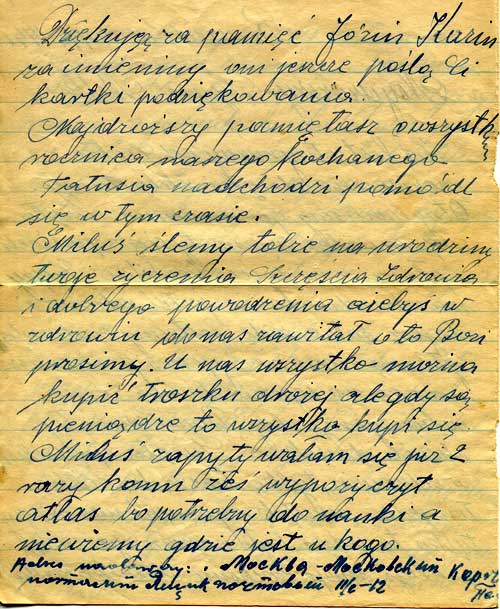 Dziękują za pamięć Józiu Karin
za imieniny oni jeszcze poślą Ci
kartki podziękowania.
Najdroższy pamiętasz o wszystkim
rocznica naszego Kochanego
Tatusia nadchodzi pomódl
się w tym czasie.
Miluś ślemy tobie na urodziny
twoje życzenia Szczęścia Zdrowia
i dobrego powodzenia ażebyś w
zdrowiu do nas zawitał o to Boga
prosimy. U nas wszystko można
kupić troszku drożej ale gdy są
pieniądze to wszystko kupi się.
Miluś zapytywałam się już 2
razy komu żeś wypożyczył
atlas bo potrzebny do nauki a
niewiemy gdzie jest u kogo.
Adres : Москва - Московский
почтовый